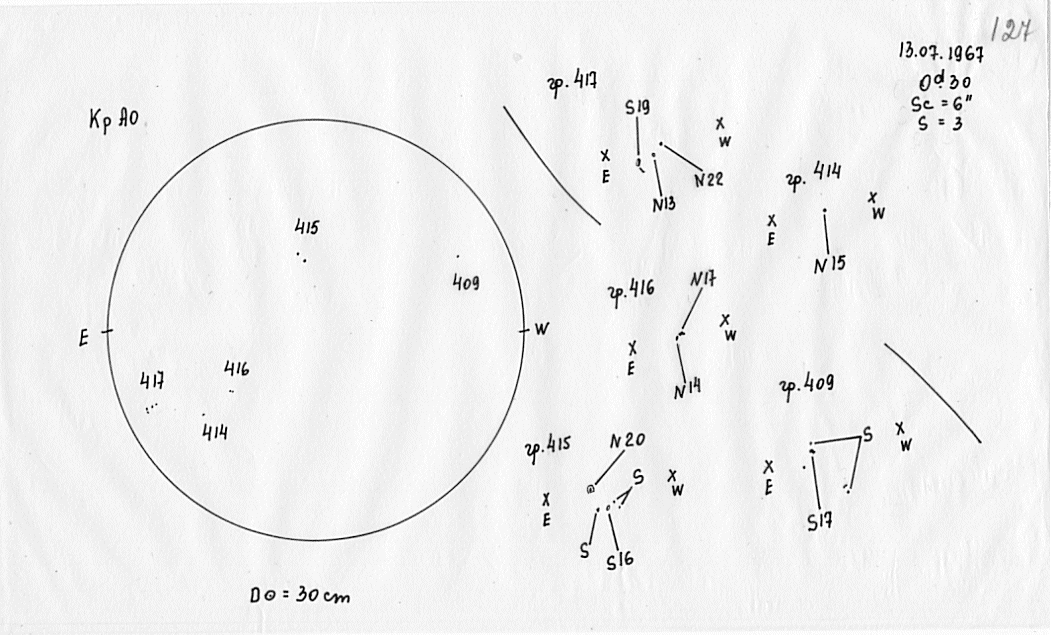 127
13.07.1967
0d.30
Sc = 6"
S = 3
Кр АО
415
409
E
W
417
416
414
D⊙ = 30 cm
гр. 417
S19
X
W
X
E
N22
N13
гр. 414
X
W
X
E
N15
гр. 416
N17
X
W
X
E
N14
гр. 409
S
X
W
X
E
S17
гр. 415
N20
S
X
W
X
E
S
S16